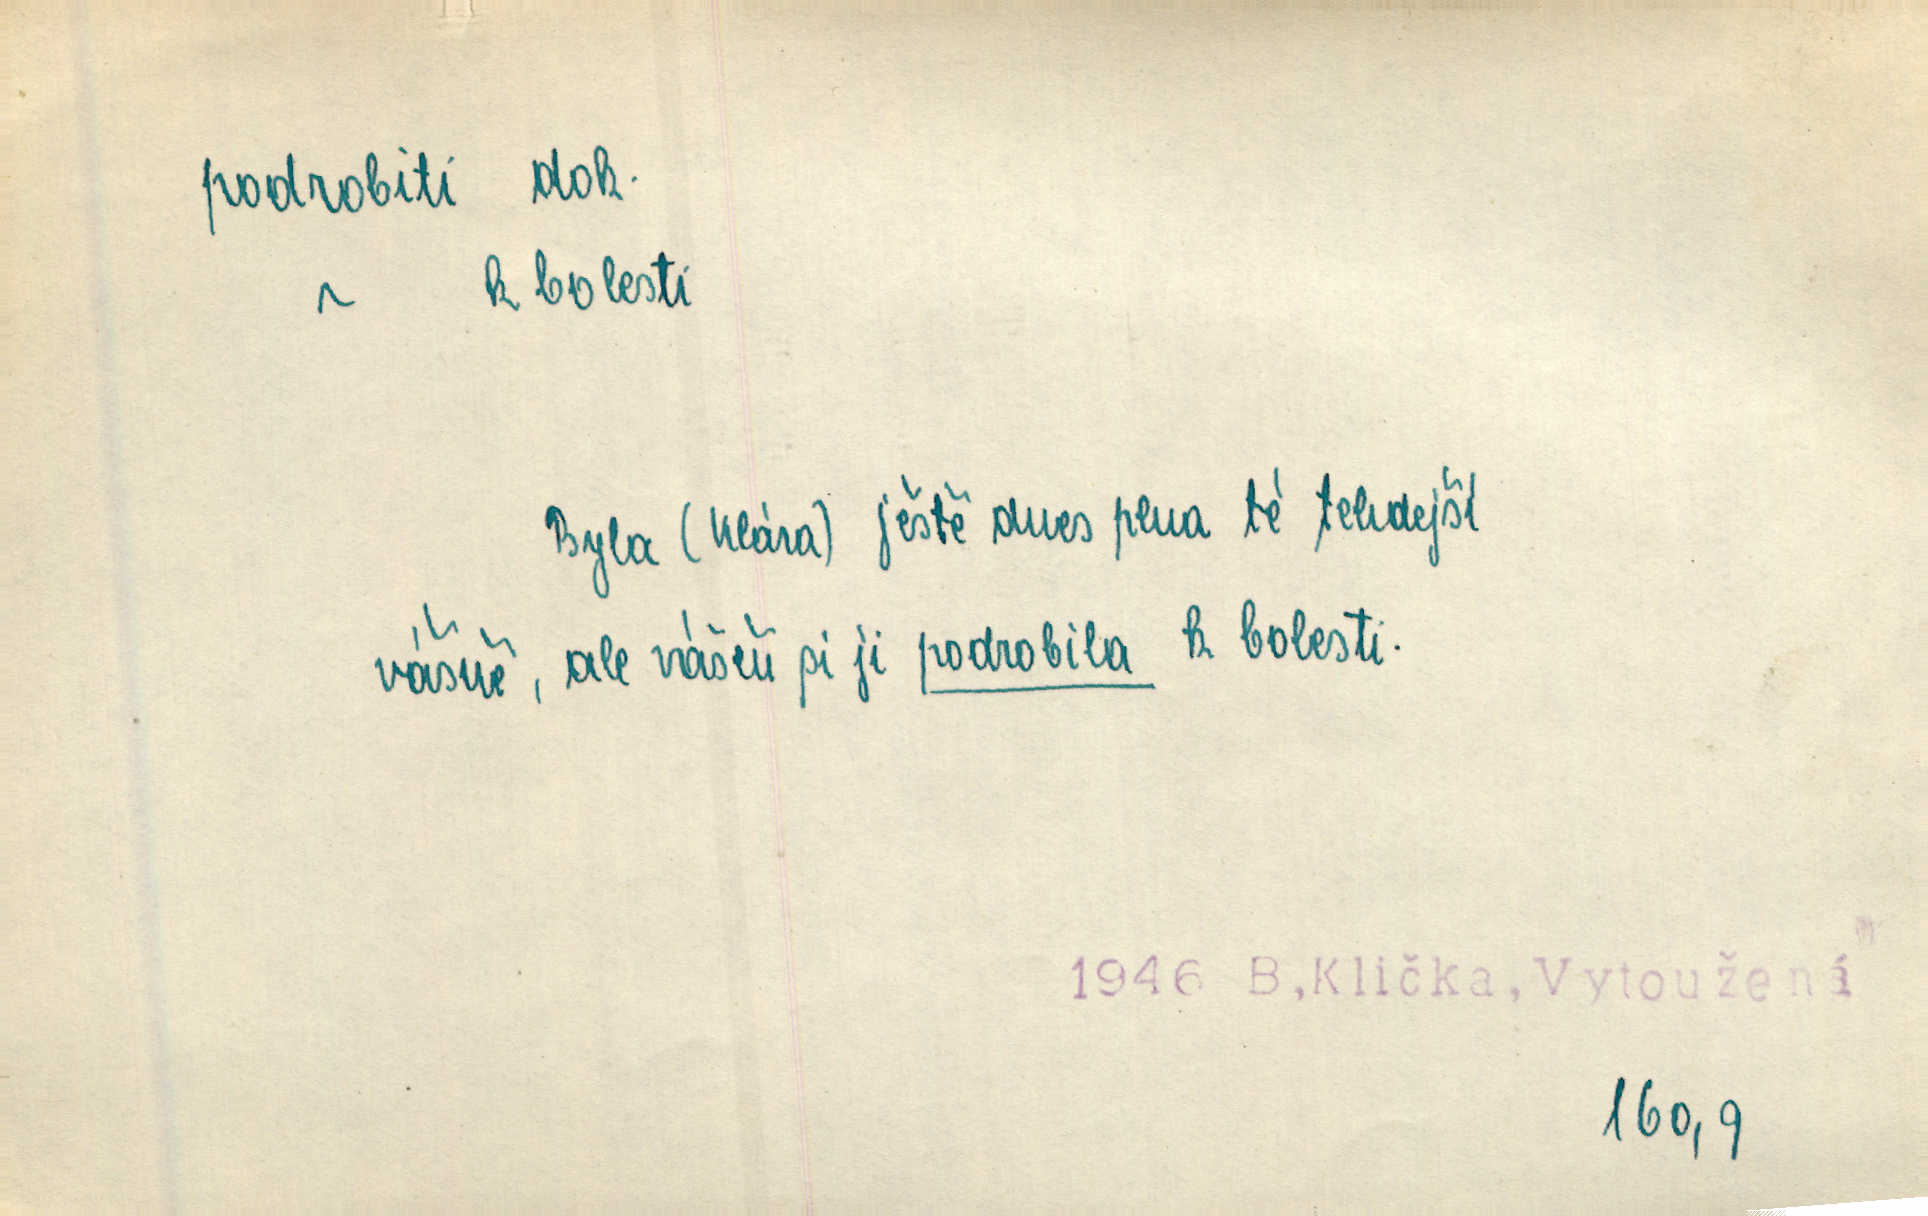 podrobiti dok.
~ k bolesti
Byla (Klára) ještě dnes plna té tehdejší
vášně, ale vášeň si ji podrobila k bolesti.
1946 B,Klička,Vytoužená
160,9